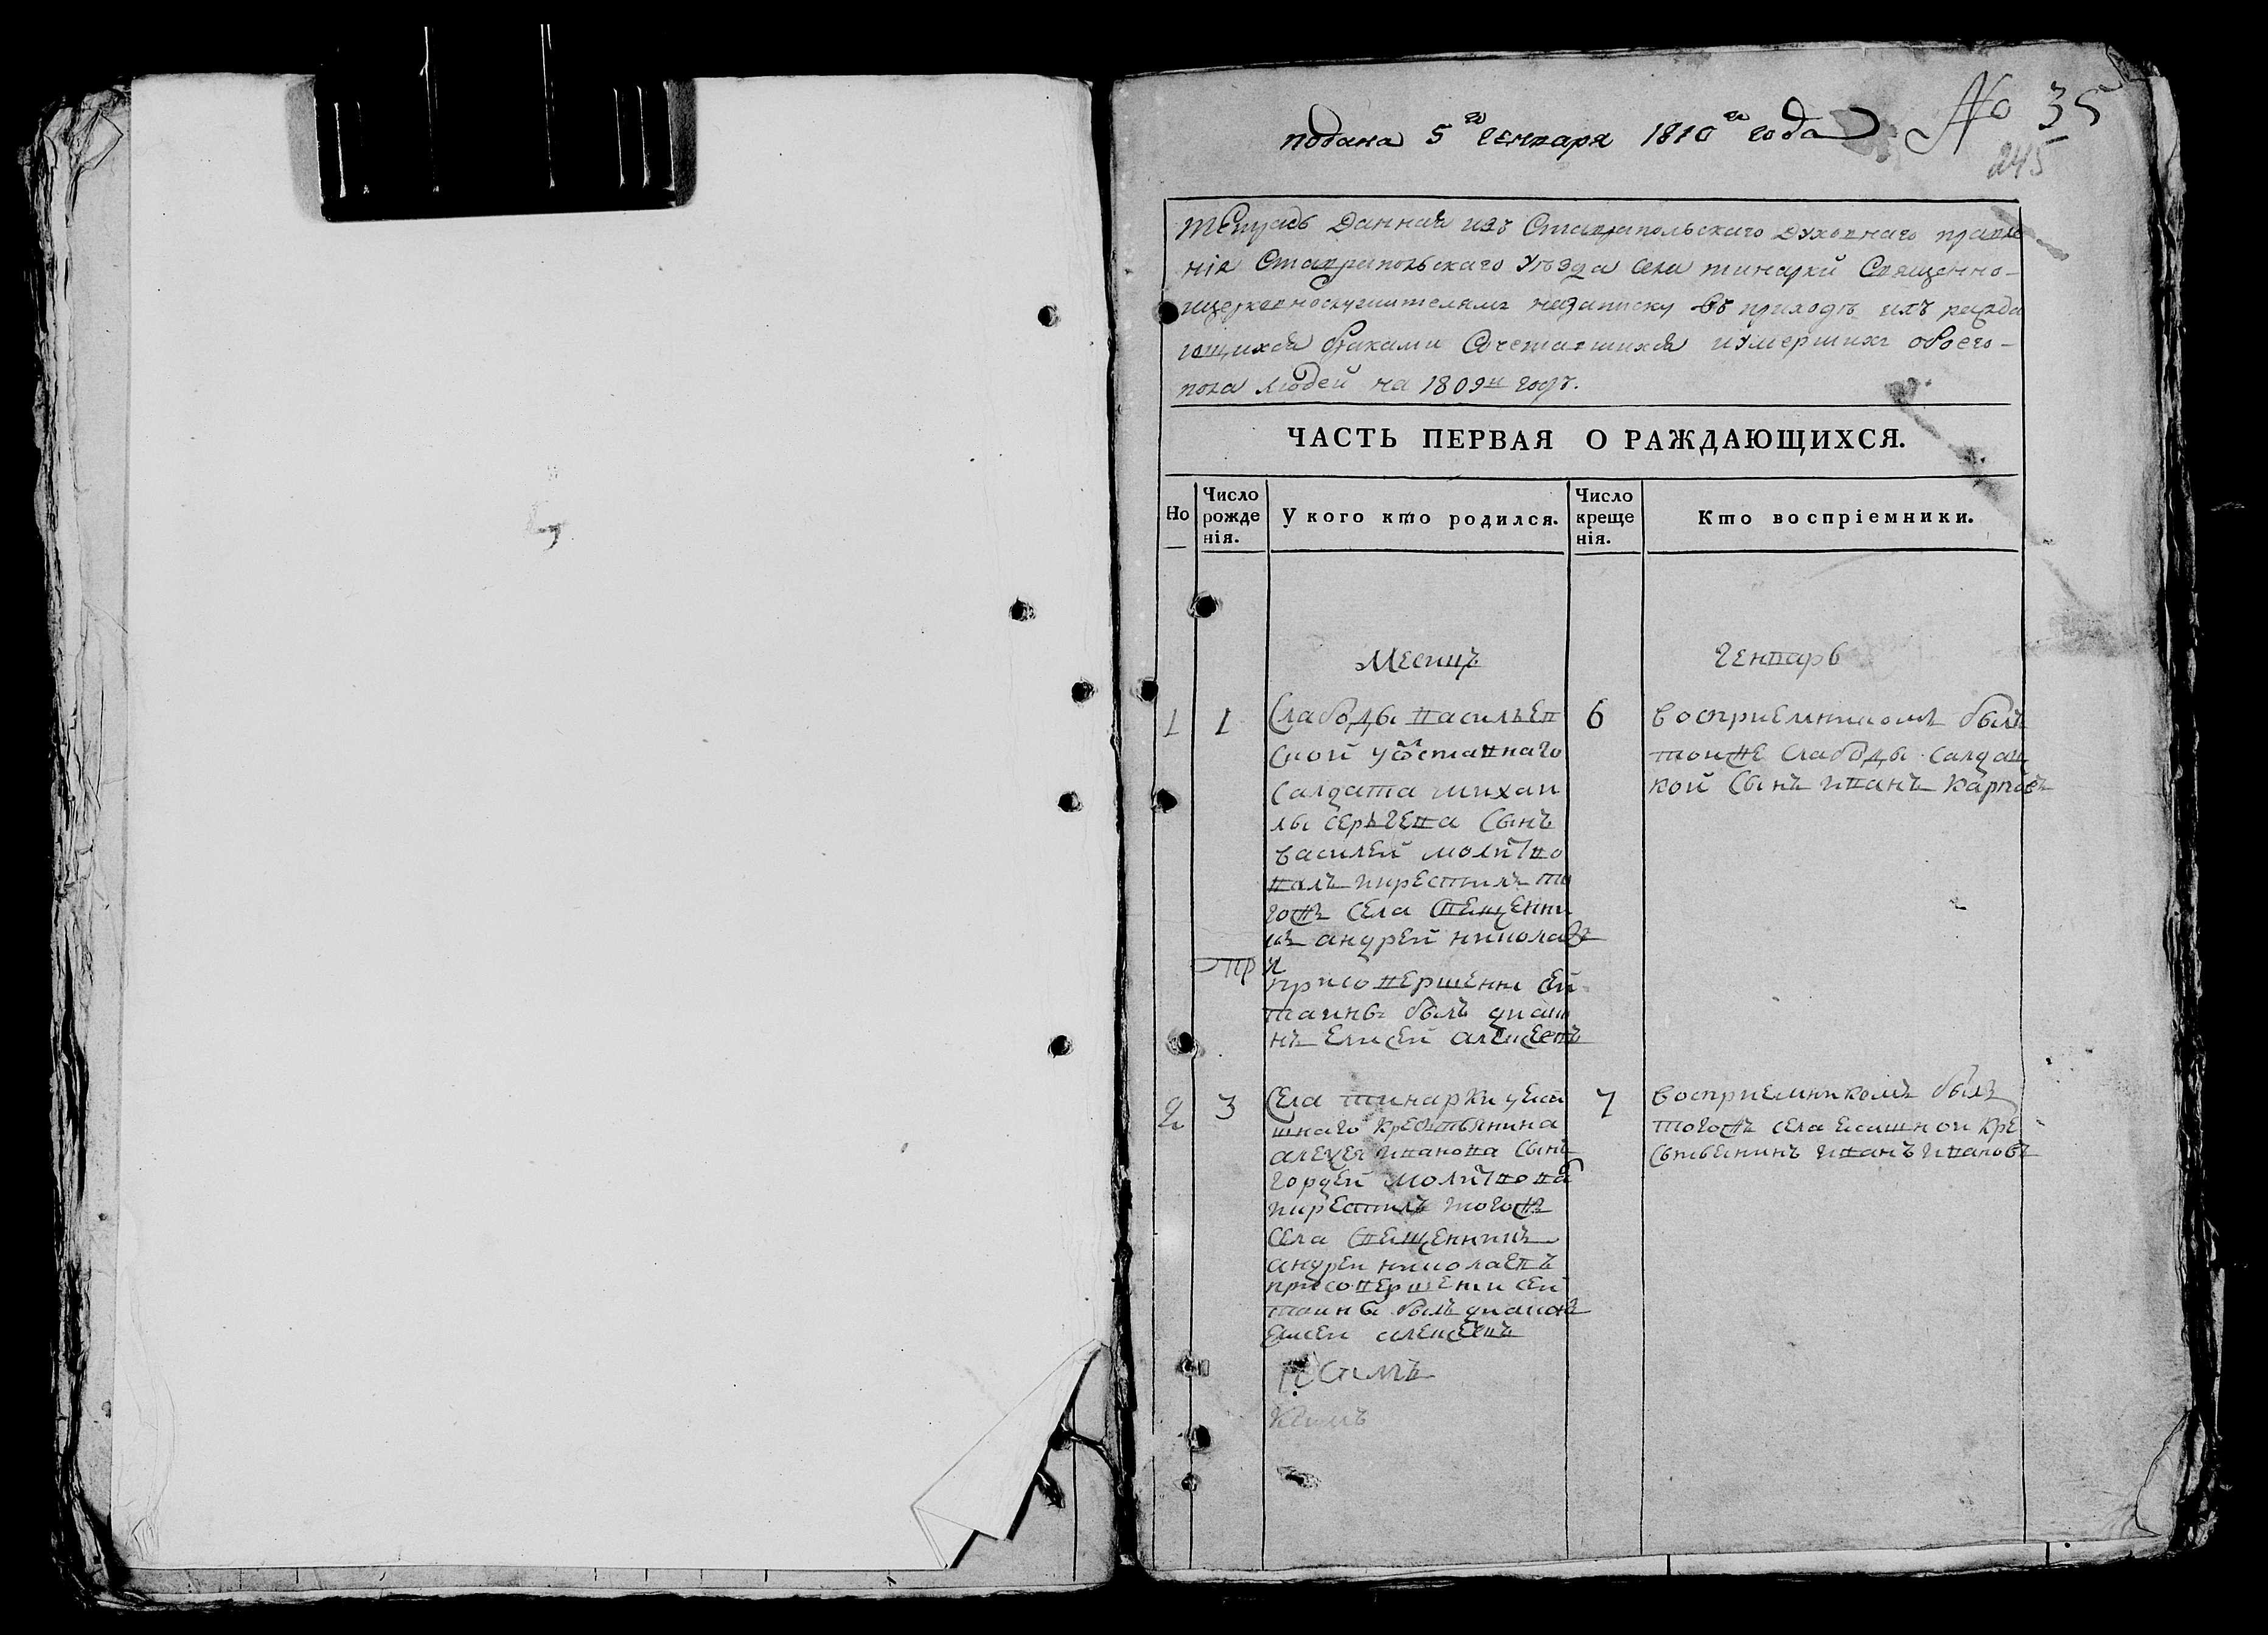 подана 5го генваря 1810го года
No 35
245
Тетрадь Данная изъ Ставропольскаго духовнаго правле
нія Ставропольскаго Уѣзда села тинарки Священно-
ицерковнослужителямъ назаписку въ приходѣ ихъ ражда
ющихся браками Сочетавшихся иумершихъ обоего-
пола людей на 1809й годъ.
ЧАСТЬ ПЕРВАЯ О РАЖДАЮЩИХСЯ.
Но
Число рожде нія.
У кого кто родился.
Число креще нія.
Кто воспріемники.
Месицъ
генварь
1
1
Слабоды васильев
ской уотставнаго
салдата михаи
лы серьгева Сынъ
василей молитво
валъ икрестилъ то
гожъ села свещенни
къ андрей николаевъ
присовершени сей
таины былъ диако
нъ Елисей алексеевъ
6
восприемникомъ былъ
тоиже слабоды салдац
кой Сынъ иванъ Карповъ
2
3
Села тинарки уеса
шнаго крестьянина
алексея иванова Сынъ
гордей молитвова
икрестилъ тогожъ
села свещенникъ
андреи николаевъ
присовершени сей
таины былъ диаконъ
елисеи алексеевъ
7
восприемникомъ былъ
тогожъ села есашнои кре
стьенинъ иванъ ивановъ